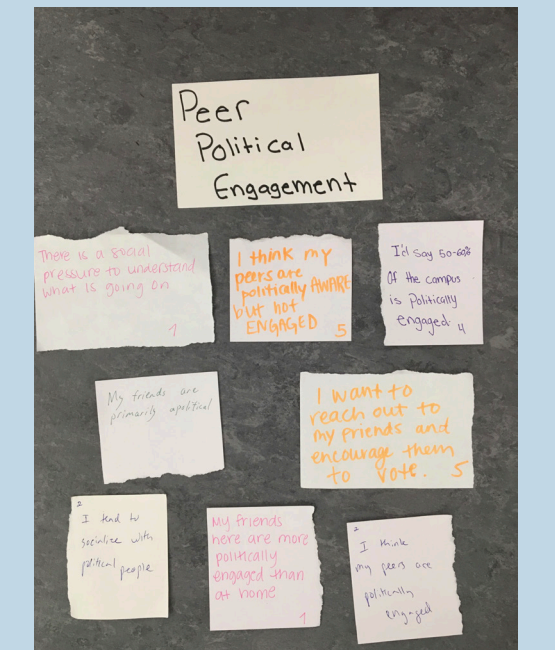 Peer
Political
Engagement
There is a social
pressure to understand
what is going on
1
I think my
peers are
politically AWARE
but not
ENGAGED 5
I'd say 50-60%
Of the campus
is Politically
engaged. 4
My friends are
primarily apolitical
I want to
reach out to
my friends and
encourage them
to vote. 5
2
I tend to
socialize with
political people
My friends
here are more
politically
engaged than
at home
1
2
I think
my peers are
politically
engaged